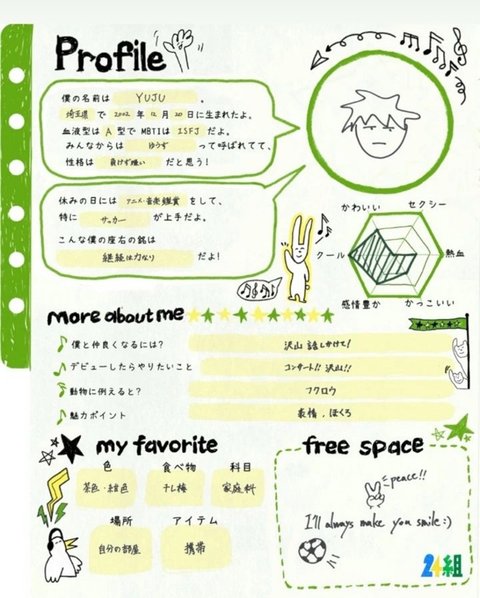 Profile
僕の名前は YUJU 。
埼玉県 で 2002 年 12 月 20 日に生まれたよ。
血液型は A 型で MBTIは ISFJ だよ。
みんなからは ゆうず って呼ばれてて、
性格は 負けず嫌い だと思う!
休みの日には アニメ・音楽鑑賞 をして、
特に サッカー が上手だよ。
こんな僕の座右の銘は
継続は力なり だよ!
かわいい
セクシー
クール
熱血
感情豊か
かっこいい
more about me
僕と仲良くなるには? 沢山 話しかけて!
デビューしたらやりたいこと コンサート!! 沢山!!
動物に例えると? フクロウ
魅力ポイント 表情、ほくろ
my favorite
色 食べ物 科目
茶色・紺色 干し梅 家庭科
場所 アイテム
自分の部屋 携帯
free space
peace!!
I'll always make you smile:)
24組